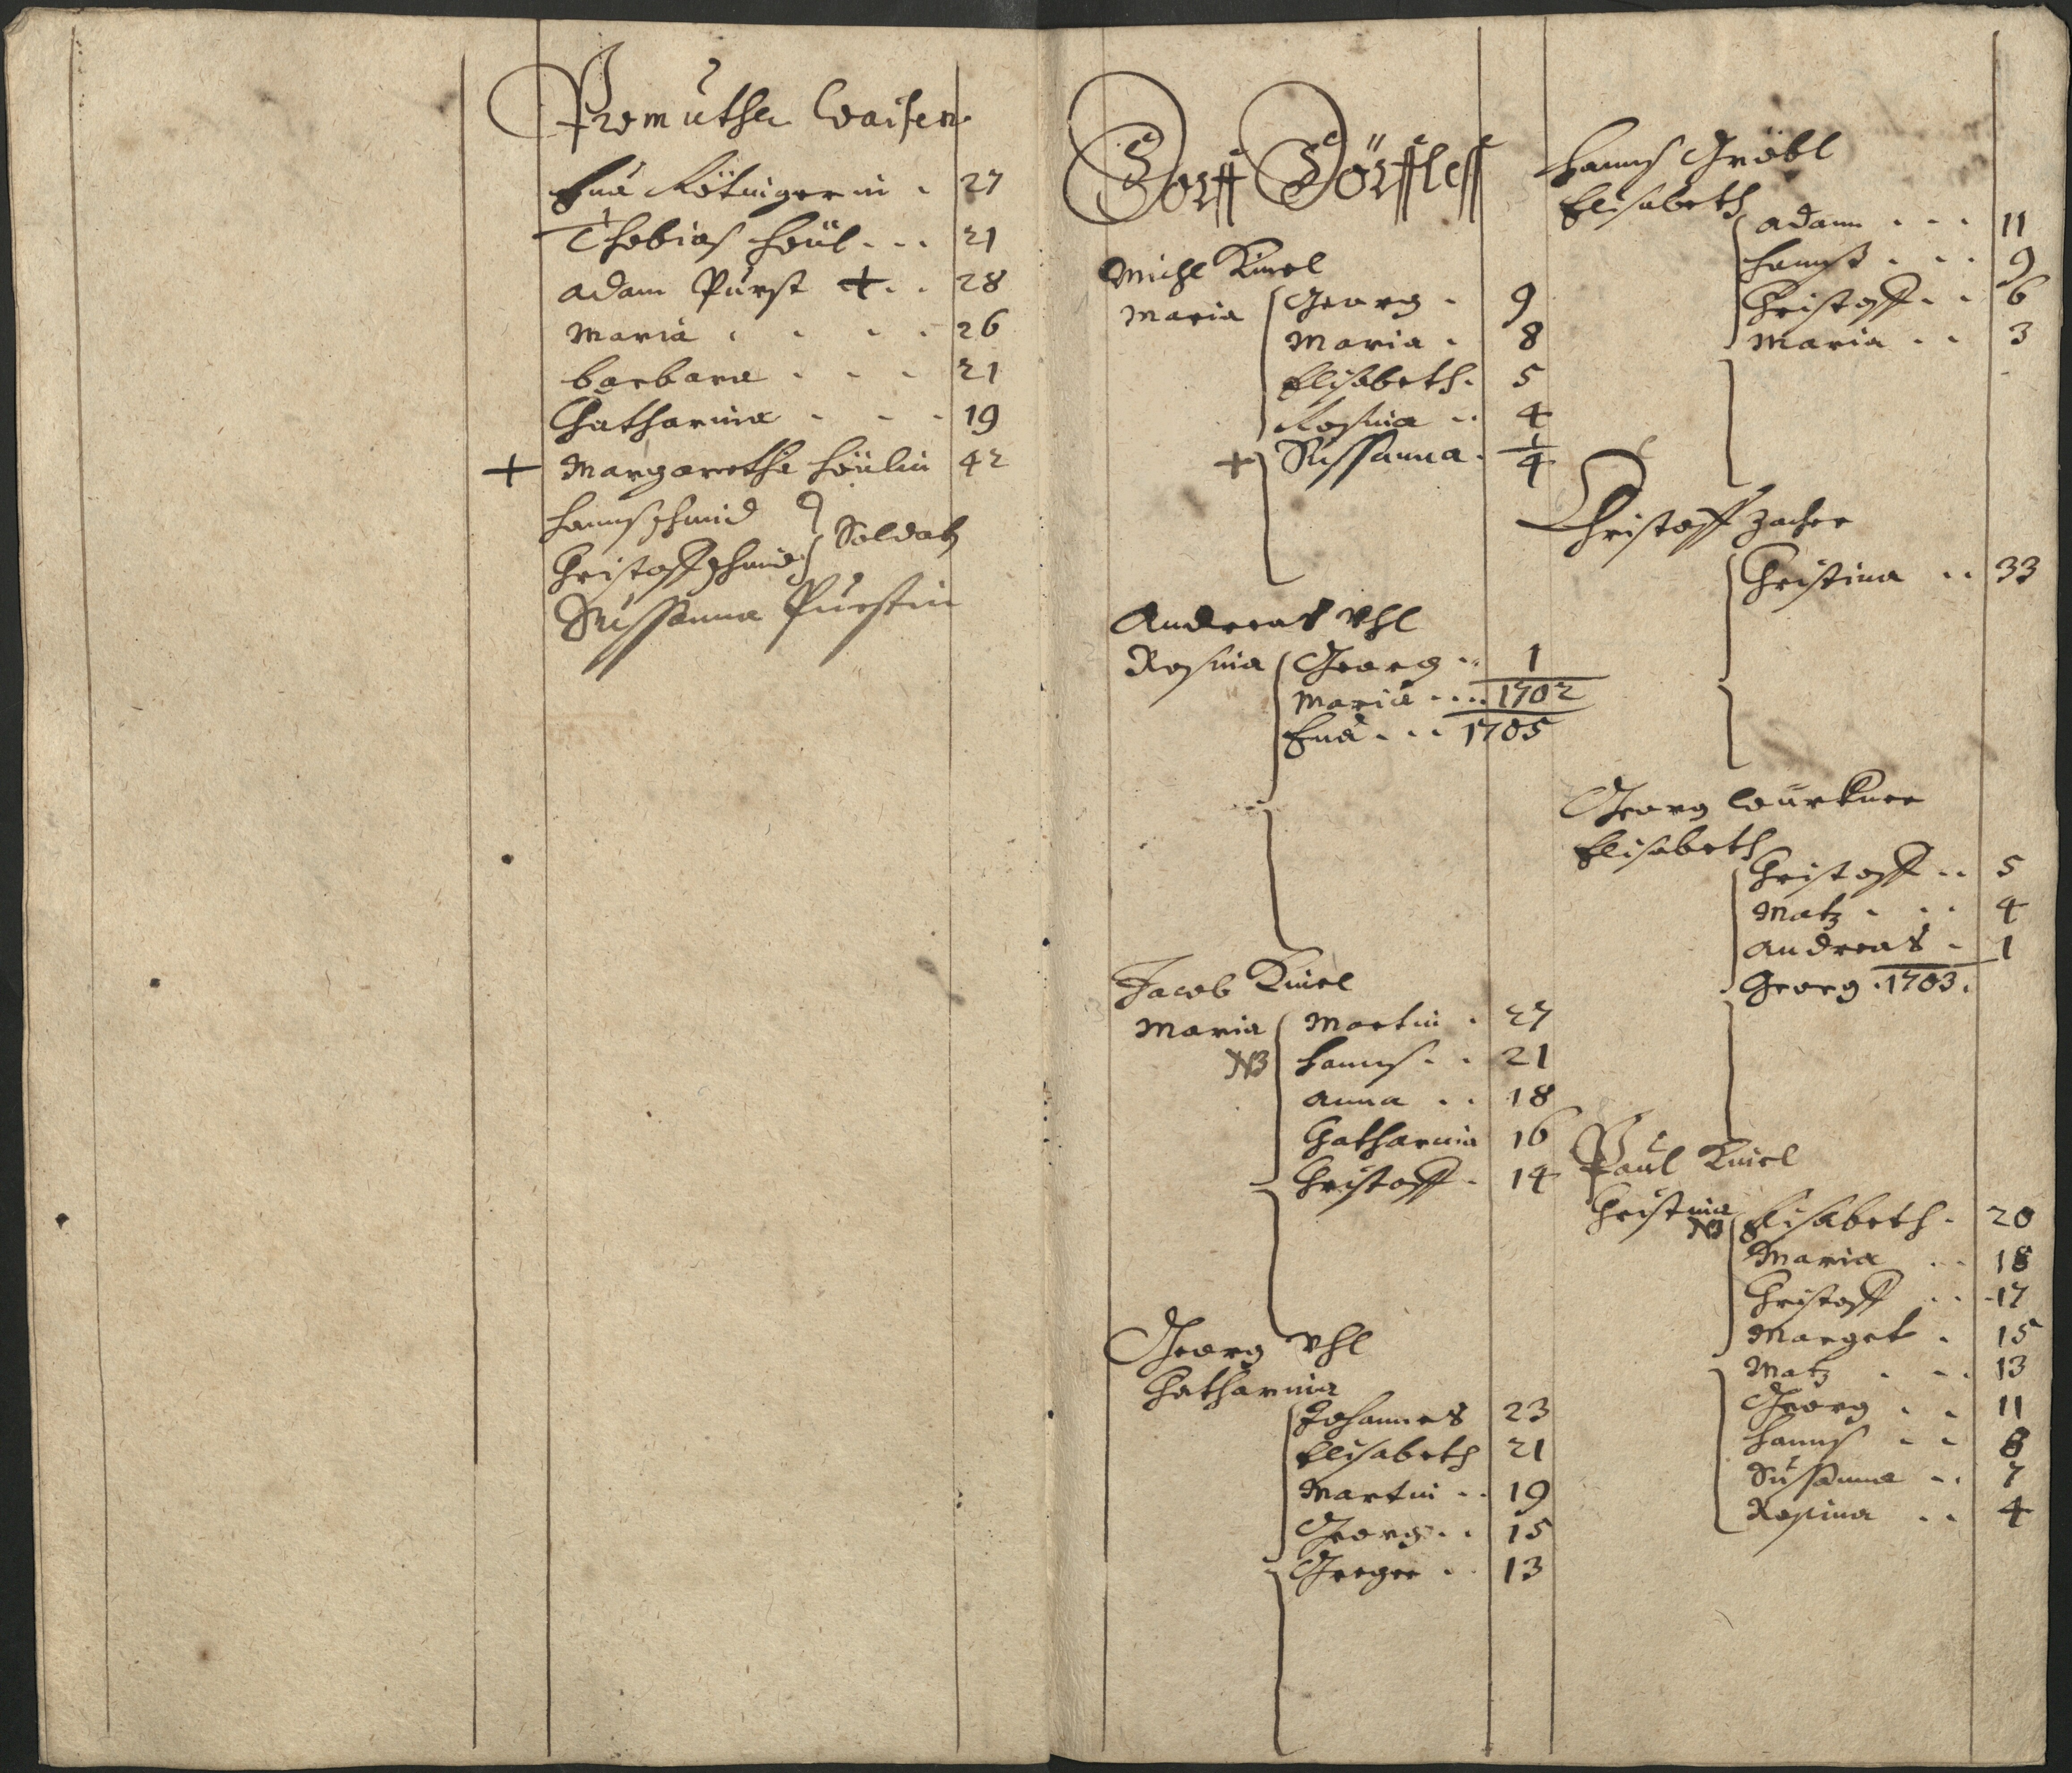 Promuther Waisen
Eva Kötingerin . 27
Thobias Heül . . . 21
Adam Pürst + . . 28
Maria . . . . 26
Barbara . . . 21
Catharina . . . 19
+ Margaretha Heülin 42
Hannß Schmid
Christoff Schmid } Soldat
Sussanna Pürstin
Dorff Dörffleß
Michl Kinel
Maria { Georg . 9
Maria . 8
Elisabeth . 5
Rosina . . 4
+ Sussanna . 1/4
Andreas Vhl
Rosina { Georg . . 1
Maria . . . . 1702
Eva . . . 1705
Jacob Kinel
Maria { Martin . 27
NB Hannß . . 21
Anna . . 18
Catharina 16
Christoff . 14
Georg Vhl
Catharina
Johannes 23
Elisabeth 21
Martin . . 19
Georg . . 15
Greger . . 13
Hannß Gröbl
Elisabeth
{ Adam . . . 11
Hannß . . . 9
Christoff . . 6
Maria . . 3
Christoff Zacher
{ Christina . . 33
Georg Würkner
Elisabeth
{ Christoff . . 5
Matz . . . 4
Andreas . 1
Georg . 1703 .
Paul Kinel
Christina
NB { Elisabeth . 20
Maria . . 18
Christoff . . 17
Marget . 15
Matz . . . 13
Georg . . 11
Hannß . . 8
Sussanna . . 7
Rosina . . 4